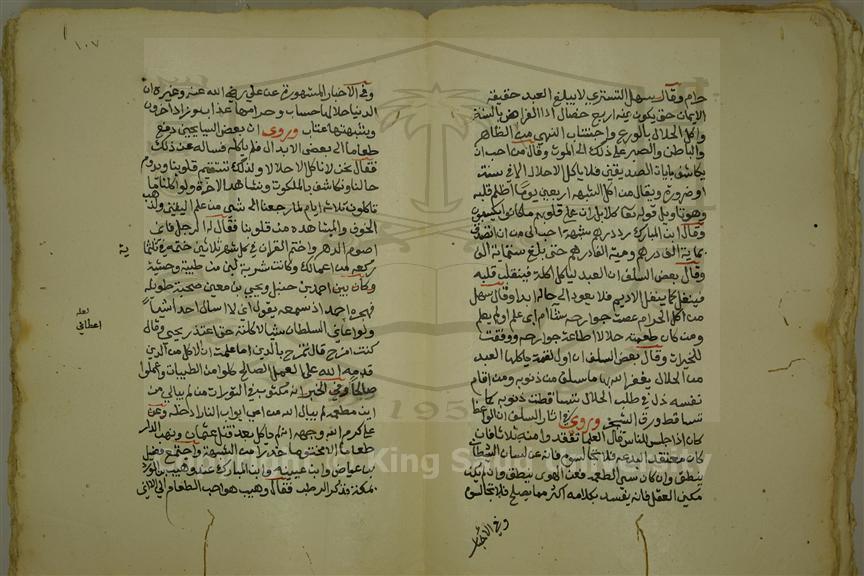 حرام وقال سهل التستري لا يبلغ العبد حقيقة
الايمان حتى يكون فيه اربع خصال ادا الفرايض بالسنة
واكل الحلال بالورع واجتناب النهي من الظاهر
والباطن والصبر على ذلك الى الموت وقال من احب ان
يكاشف بايات الصديقين فلا ياكل الا حلالا ولا في سنة
او ضرورة ويقال من اكل الشبهة اربعين يوما اظلم قلبه
وهو تاويل قوله تعا كلا بل ران على قلوبهم ما كانوا يكسبون
وقال ابن المبارك رد درهم شبهة احب الي من ان اتصدق
بماية الف درهم وماية الف درهم حتى بلغ ستماية الف
وقال بعض السلف ان العبد لياكل اكلة فينقلب قلبه
فينغل كما ينغل الاديم فلا يعود الى حاله ابدا وقال سهل
من اكل الحرام عصت جوارحه شاء ام ابى علم او لم يعلم
ومن كان طعمته حلالا اطاعته جوارحه ووفقت
للخيرات وقال بعض السلف ان اول لقمة ياكلها العبد
من الحلال يغفر الله بها ما سلف من ذنوبه ومن اقام
نفسه ذل في طلب الحلال تساقطت ذنوبه كما
تساقط ورق الشجر وروي في اثار السلف ان الواعظ
كان اذا جلس للناس قال العلما تفقدوا منه ثلاثا فان
كان معتقد البدعة فلا تجالسوه فانه عن لسان الشيطان
ينطق وان كان سي الطعمة فعن الهوى ينطق وان لم يكن
مكين العقل فانه يفسد بكلامه اكثر مما يصلح فلا تجالسوه
وفي الاخبار
١٠٧
وفي الاخبار المشهورة عن علي رضي الله عنه وغيره ان
الدنيا حلالها حساب وحرامها عذاب وزاد اخرون
وشبهتها عتاب وروي ان بعض السيايحين دفع
طعاما الى بعض الابدال فلم ياكله فساله عن ذلك
فقال نحن لا ناكل الا حلالا ولذلك تستقيم قلوبنا ويدوم
حالنا ونكاشف بالملكوت ونشاهد الاخرة ولو اكلنا مما
تاكلون ثلاثة ايام لما رجعنا الى شي من علم اليقين ولذهب
الخوف والمشاهدة من قلوبنا فقال له الرجل فاني
اصوم الدهر واختم القران في كل شهر ثلاثين ختمة
ركعة من اعمالك وكانت شربة لبن من ظبية وحشية
وكان بين احمد بن حنبل ويحيى بن معين صحبة طويلة
فهجره احمد اذ سمعه يقول اني لا اسال احدا شيا
ولو اعطاني السلطان شيا لاكلته حتى اعتذر يحيى وقال
كنت امزح قال تمزح بالدين اما علمت ان الاكل من الدين
قدمه الله على العمل الصالح كلوا من الطيبات واعملوا
صالحا وفي الخبر انه مكتوب في التورات من لم يبالي من
اين مطعمه لم يبال الله من اي ابواب النار ادخله وعن
علي كرم الله وجهه انه لم ياكل بعد قتل عثمان ونهب الدار
طعاما الا مختوما حذرا من الشبهة واجتمع فضيل
بن عياض وابن عيينة وابن المبارك عند وهيب بن الورد
بمكة فذكر الرطب فقال وهيب هو احب الطعام الي الا اني
لعله
اعطاني
King Saud University
1957